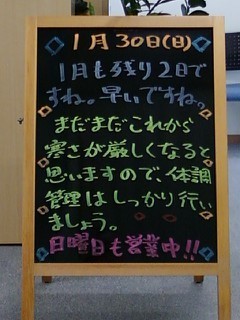 1月30日(日)
1月も残り2日で
すね。早いですね。
まだまだこれから
寒さが厳しくなると
思いますので、体調
管理はしっかり行い
ましょう。
日曜日も営業中!!